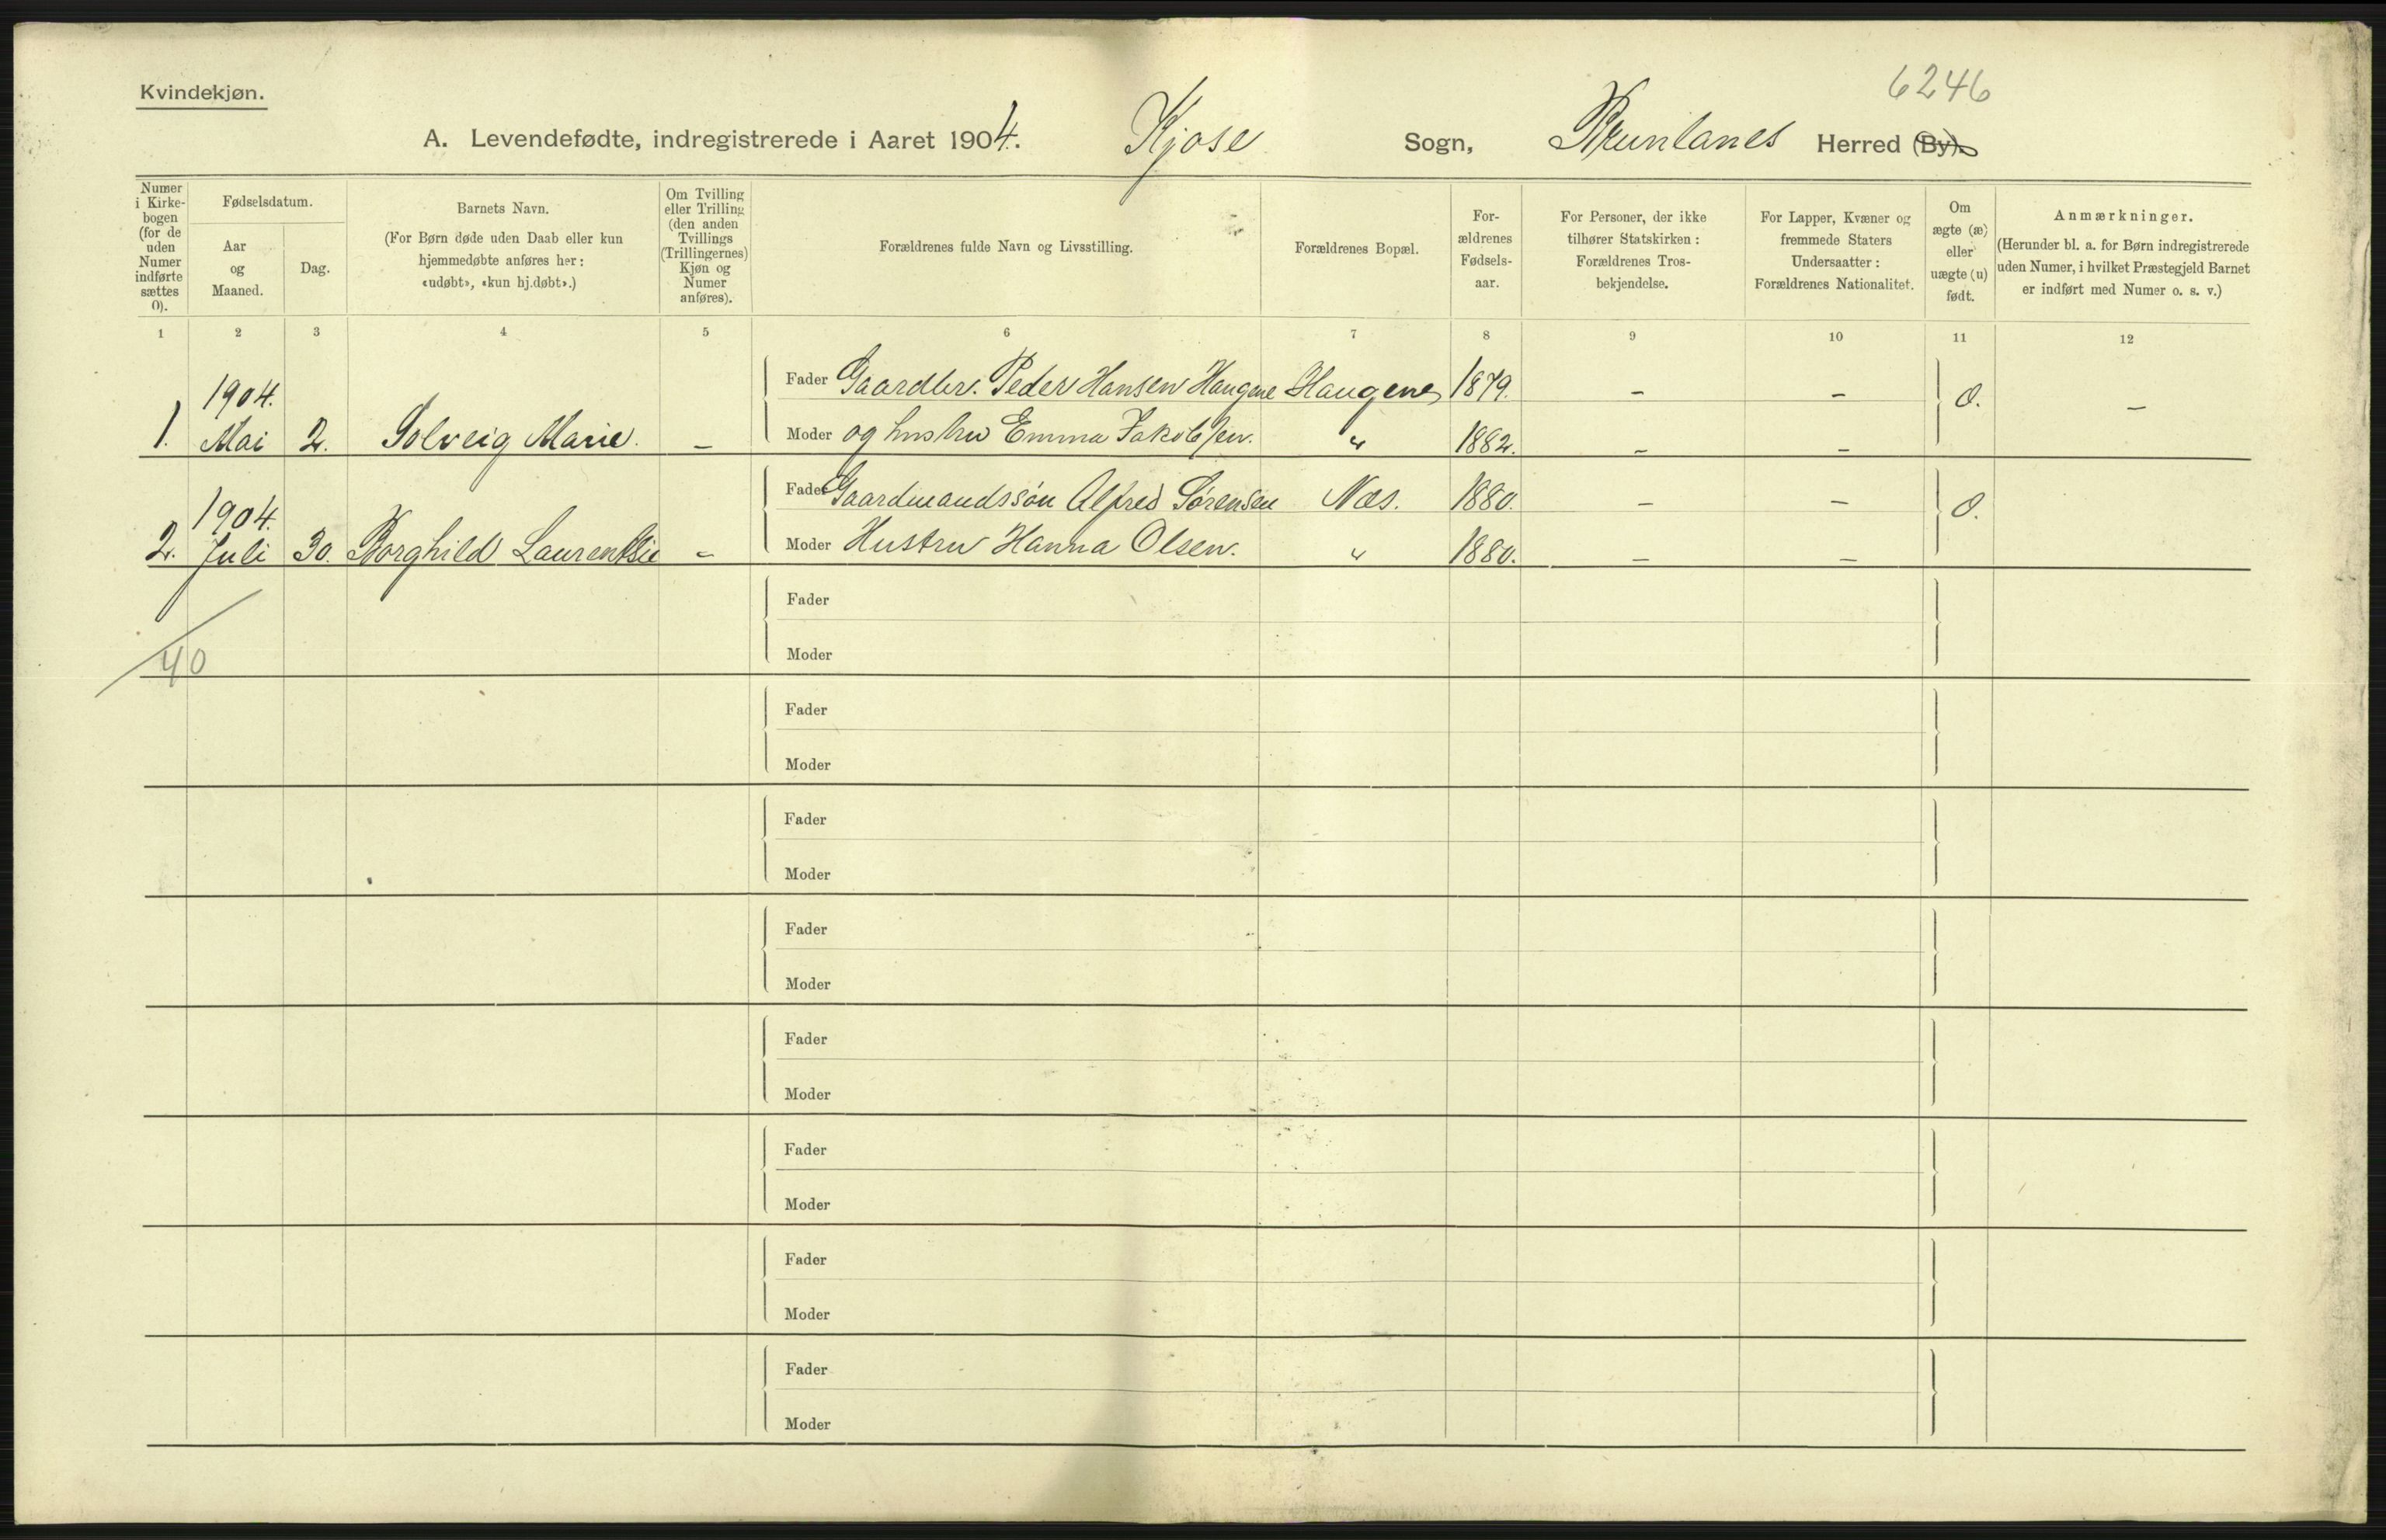 6246
Kvindekjøn.
A. Levendefødte, indregistrerede i Aaret 1904. Kjose Sogn, Brunlanes Herred (By).
Numer i Kirkebogen (for de uden Numer indførte sættes 0).
Fødselsdatum.
Aar og Maaned.
Dag.
Barnets Navn.
(For Børn døde uden Daab eller kun hjemmedøbte anføres her: «udøbt», «kun hj.døbt».)
Om Tvilling eller Trilling (den anden Tvillings (Trillingernes) Kjøn og Numer anføres).
Forældrenes fulde Navn og Livsstilling.
Forældrenes Bopæl.
Forældrenes Fødselsaar.
For Personer, der ikke tilhører Statskirken: Forældrenes Trosbekjendelse.
For Lapper, Kvæner og fremmede Staters Undersaatter: Forældrenes Nationalitet.
Om ægte (æ) eller uægte (u) født.
Anmærkninger.
(Herunder bl. a. for Børn indregistrerede uden Numer, i hvilket Præstegjeld Barnet er indført med Numer o. s. v.)
1 2 3 4 5 6 7 8 9 10 11 12
1904.
Fader Gaardbr. Peder Hansen Haugene Haugene 1879. - -
1. Mai 2. Solveig Marie. - Moder og hustru Emma Jakobsen. " 1882. - - -
1904.
Fader Gaardmandssøn Alfred Sørensen Næs. 1880. - -
2. Juli 30. Borghild Laurentsie - Moder Hustru Hanna Olsen. " 1880. - -
Fader
40
Moder
Fader
Moder
Fader
Moder
Fader
Moder
Fader
Moder
Fader
Moder
Fader
Moder
Fader
Moder